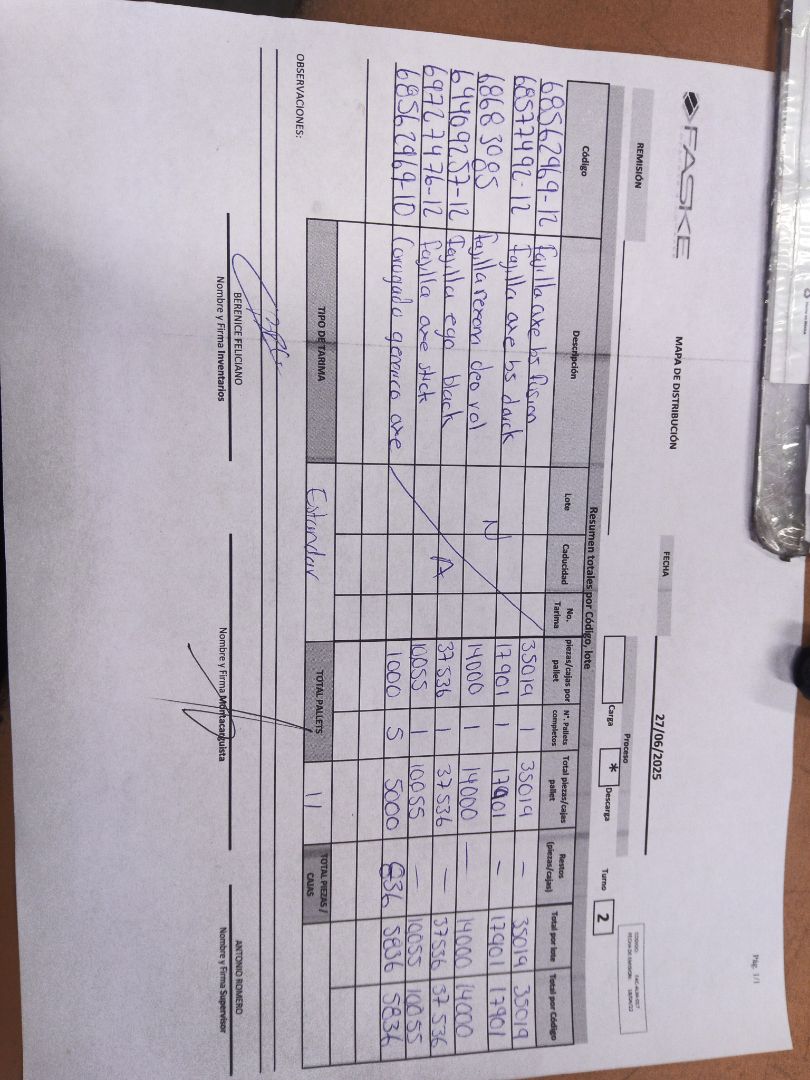 FASKE
MAPA DE DISTRIBUCIÓN
Pág. 1/1
REMISIÓN
FECHA 27/06/2025
Proceso
Carga * Descarga Turno 2
Resumen totales por Código, lote
Código Descripción Lote Caducidad No. Tarima piezas/cajas por pallet N°. Pallets completos Total piezas/cajas pallet Restos (piezas/cajas) Total por lote Total por Código
68562969-12 Fajilla axe bs fusion 35019 1 35019 - 35019 35019
68577492-12 Fajilla axe bs dark 17901 1 17901 - 17901 17901
68683085 Fajilla rexem deo rol N 14000 1 14000 - 14000 14000
64469257-12 Fajilla ego black A 37536 1 37536 - 37536 37536
69727476-12 fajilla axe stick 10055 1 10055 - 10055 10055
68562969-10 Corugado generico axe 1000 5 5000 836 5836 5836
TIPO DE TARIMA Estandar TOTAL PALLETS 11 TOTAL PIEZAS / CAJAS
OBSERVACIONES:
BERENICE FELICIANO ANTONIO ROMERO
Nombre y Firma Inventarios Nombre y Firma Montacarguista Nombre y Firma Supervisor